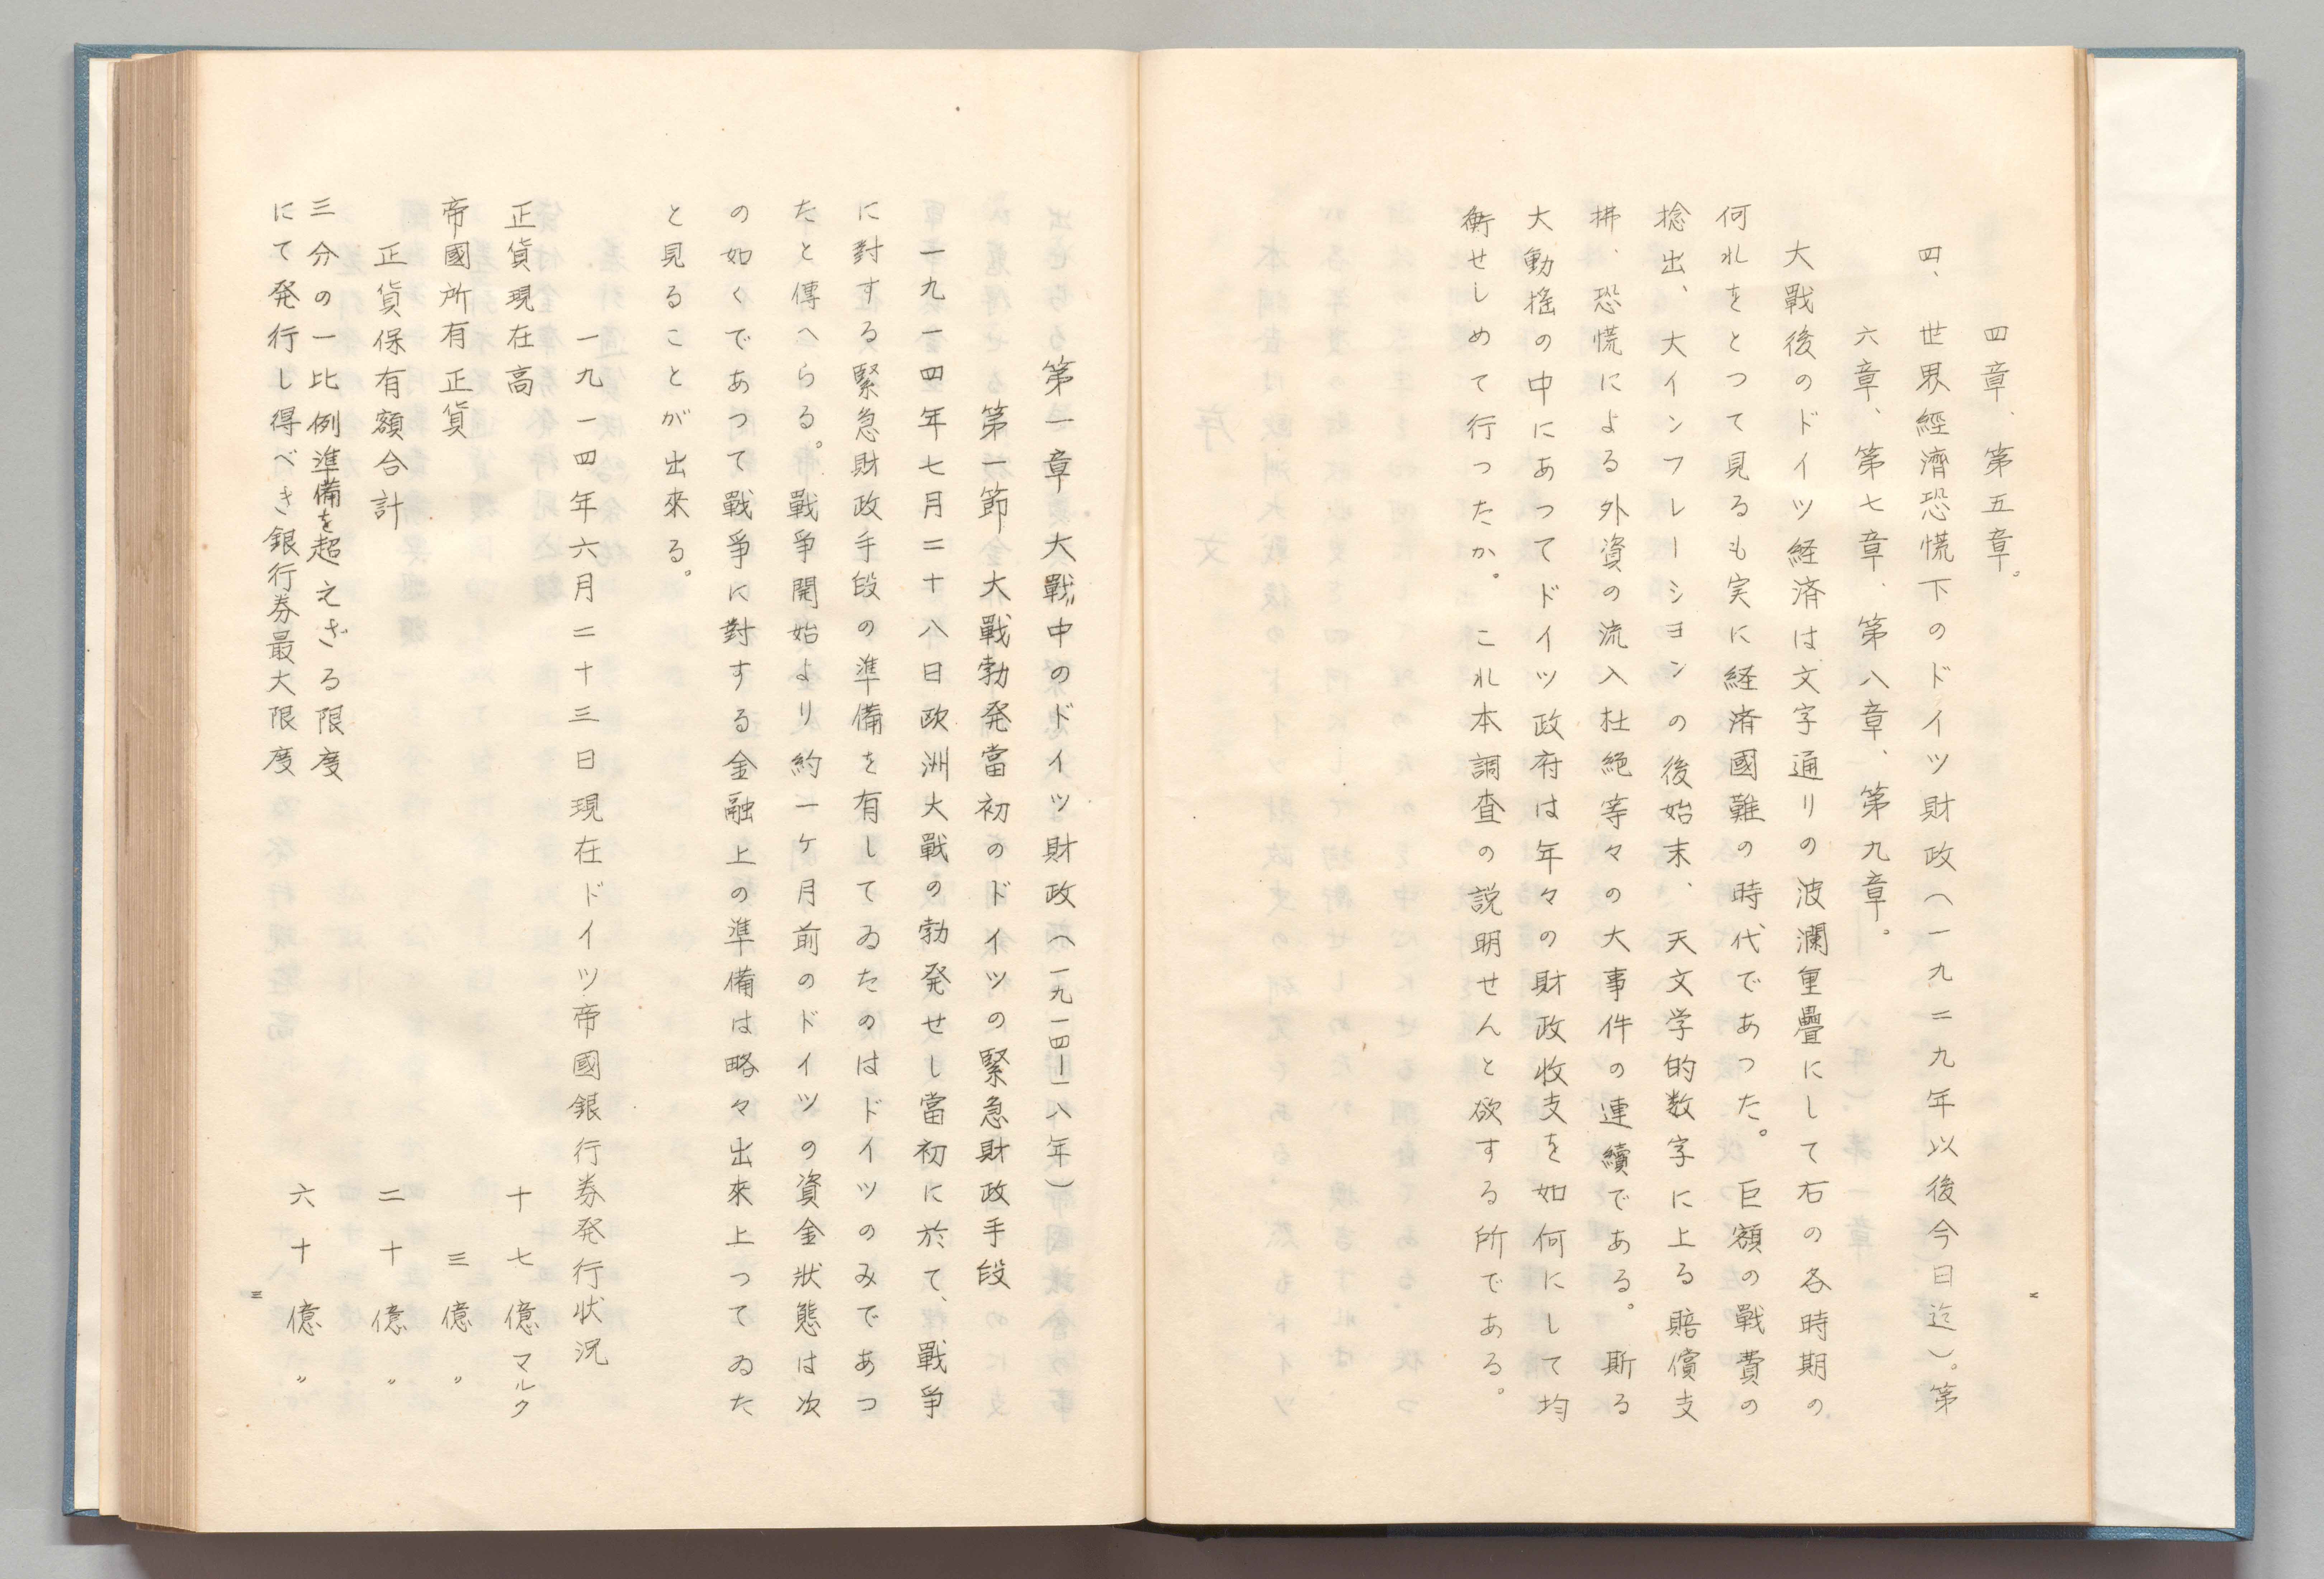 四章、第五章。
四、世界經濟恐慌下のドイツ財政(一九二九年以後今日迄)。第
六章、第七章、第八章、第九章。
大戰後のドイツ経済は文字通リの波瀾重疊にして右の各時期の
何れをとつて見るも実に経済國難の時代であつた。巨額の戰費の
捻出、大インフレーシヨンの後始末、天文学的数字に上る賠償支
拂、恐慌による外資の流入杜絶等々の大事件の連續である。斯る
大動搖の中にあつてドイツ政府は年々の財政收支を如何にして均
衡せしめて行つたか。これ本調査の説明せんと欲する所である。
二
第一章 大戰中のドイツ財政(一九一四—一八年)
第一節 大戰勃発當初のドイツの緊急財政手段
一九一四年七月二十八日欧洲大戰の勃発せし當初に於て、戰爭
に對する緊急財政手段の準備を有してゐたのはドイツのみであつ
たと傳へらる。戰爭開始より約一ケ月前のドイツの資金狀態は次
の如くであつて戰爭に對する金融上の準備は略々出來上つてゐた
と見ることが出來る。
一九一四年六月二十三日現在ドイツ帝國銀行券発行状況
正貨現在高 十七億マルク
帝國所有正貨 三億〃
正貨保有額合計 二十億〃
三分の一比例準備を超えざる限度
にて発行し得べき銀行券最大限度 六十億〃
三